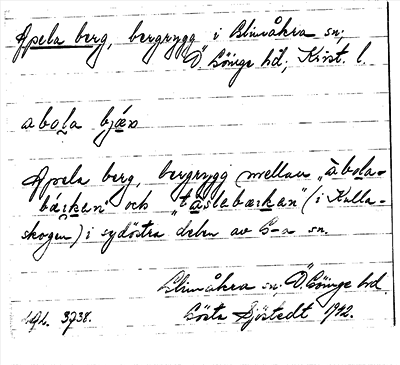 Apela berg, bergrygg i Glimåkra sn;
Ö Göinge hd; Krist. l.
abola bjær
Apela berg, bergrygg mellan "åbola-
barkan" och "taslebærkan" (i Kulla-
skogen) i sydöstra delen av G-a sn.
Glimåkra sn, Ö. Göinge hd.
Gösta Sjöstedt 1942.
3738.